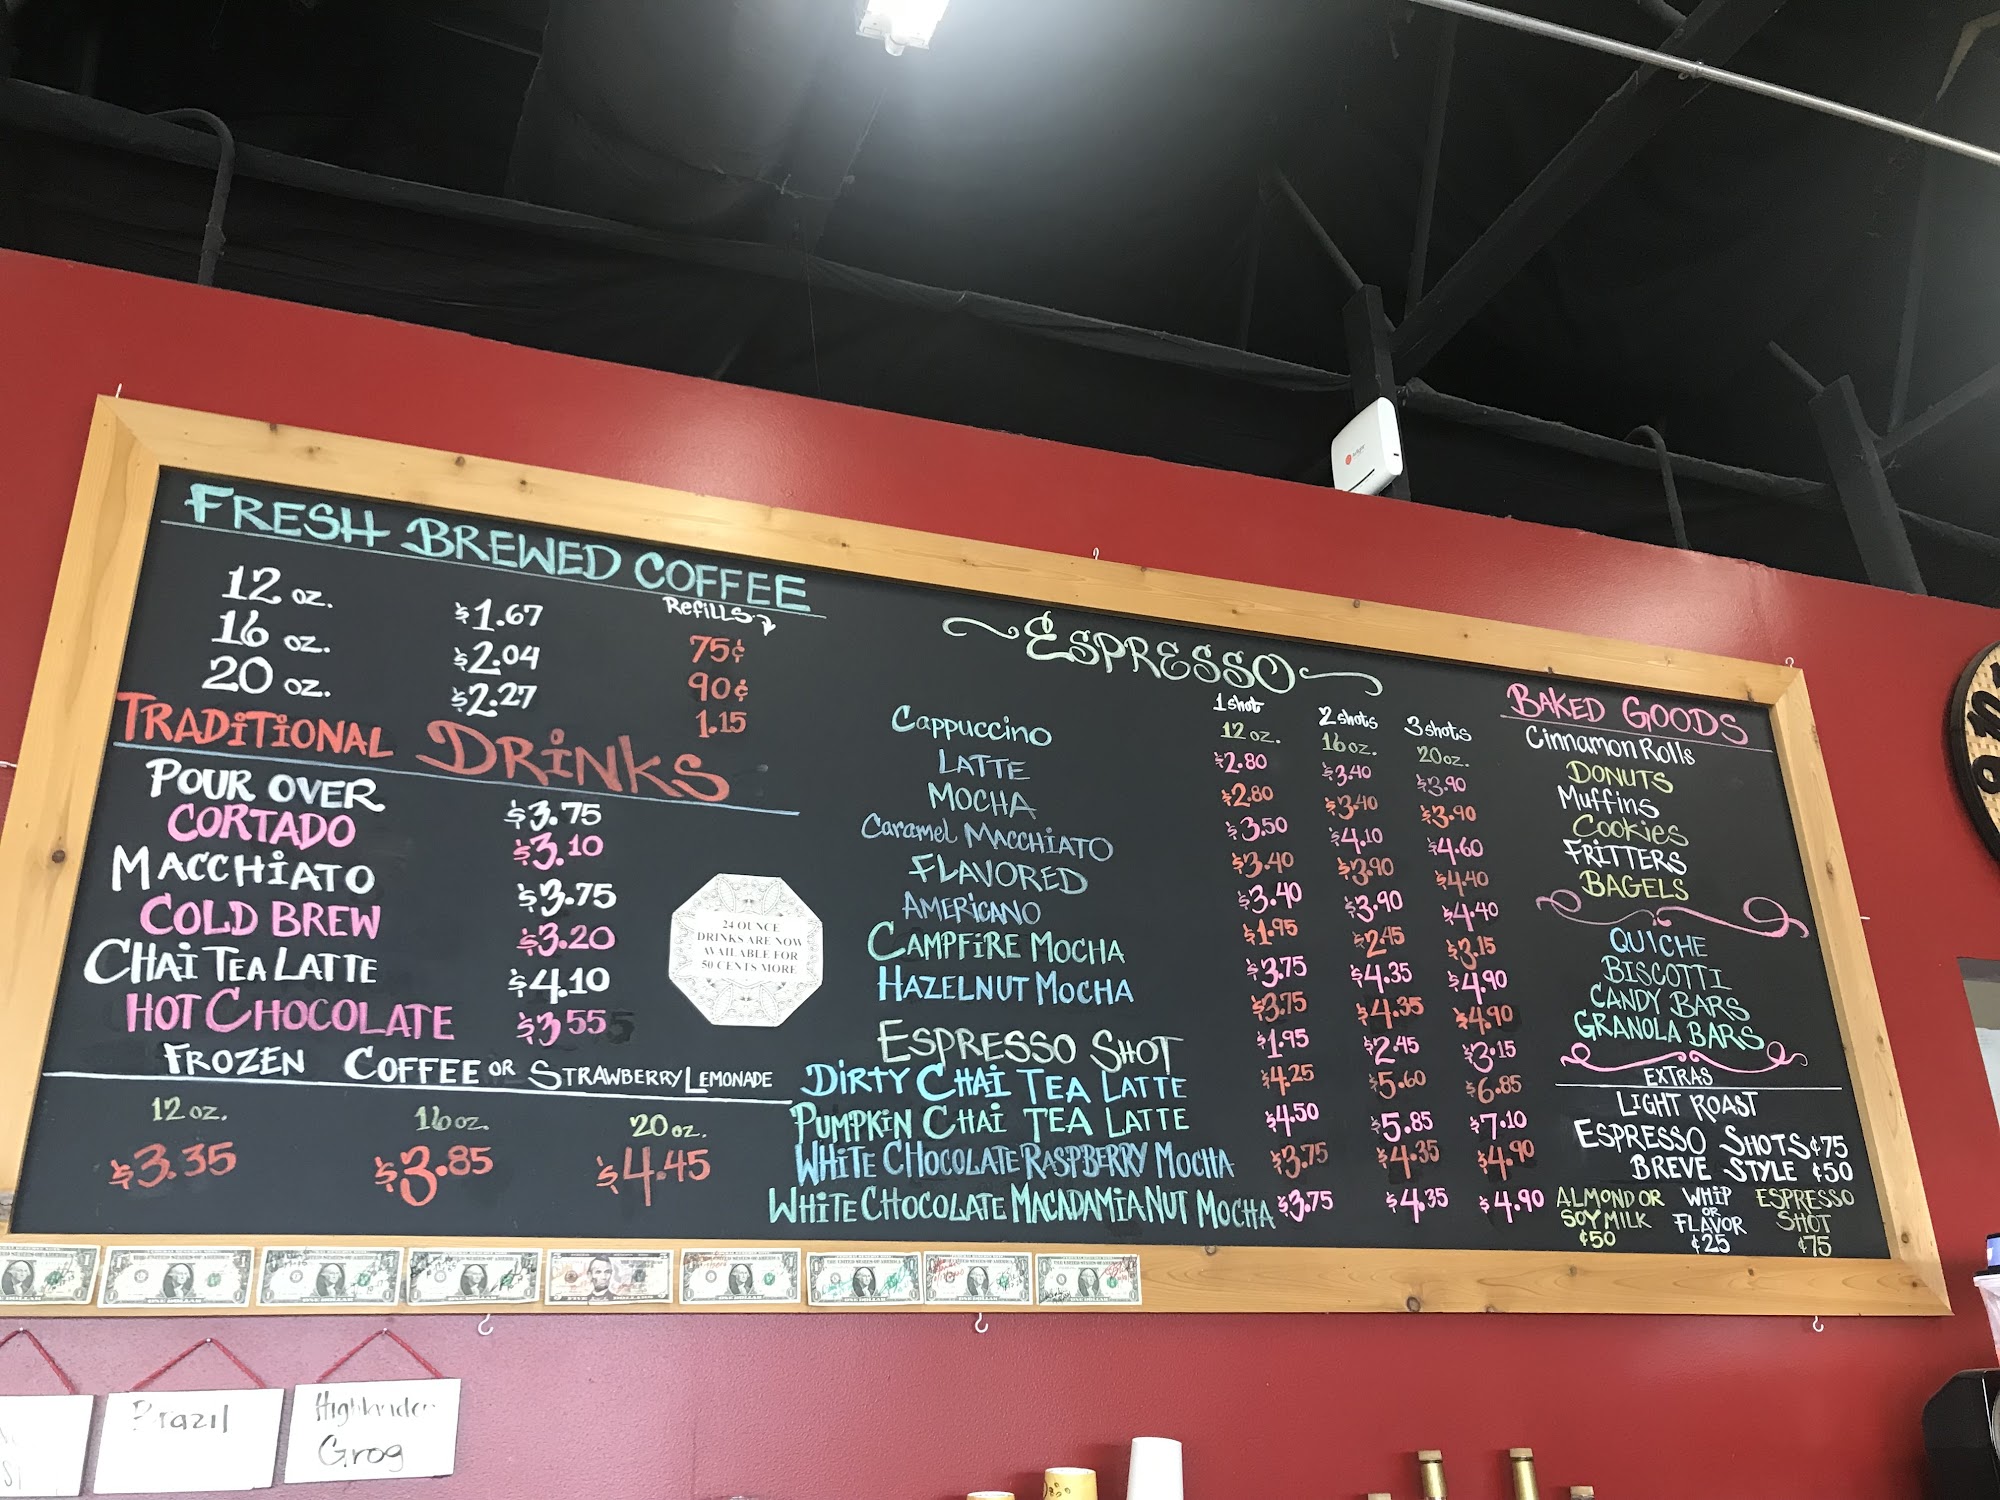 FRESH BREWED COFFEE
Refills
12 oz. $1.67 75¢
16 oz. $2.04 90¢
20 oz. $2.27 1.15
TRADITIONAL DRINKS
POUR OVER $3.75
CORTADO $3.10
MACCHIATO $3.75
COLD BREW $3.20
CHAI TEA LATTE $4.10
HOT CHOCOLATE $3.55
FROZEN COFFEE OR STRAWBERRY LEMONADE
12 oz. 16 oz. 20 oz.
$3.35 $3.85 $4.45
24 OUNCE
DRINKS ARE NOW
AVAILABLE FOR
50 CENTS MORE
ESPRESSO
1 shot 2 shots 3 shots
12 oz. 16 oz. 20 oz.
Cappuccino $2.80 $3.40 $3.90
LATTE $2.80 $3.40 $3.90
MOCHA $3.50 $4.10 $4.60
Caramel MACCHIATO $3.40 $3.90 $4.40
FLAVORED $3.40 $3.90 $4.40
AMERICANO $1.95 $2.45 $3.15
CAMPFIRE MOCHA $3.75 $4.35 $4.90
HAZELNUT MOCHA $3.75 $4.35 $4.90
ESPRESSO SHOT $1.95 $2.45 $3.15
DIRTY CHAI TEA LATTE $4.25 $5.60 $6.85
PUMPKIN CHAI TEA LATTE $4.50 $5.85 $7.10
WHITE CHOCOLATE RASPBERRY MOCHA $3.75 $4.35 $4.90
WHITE CHOCOLATE MACADAMIA NUT MOCHA $3.75 $4.35 $4.90
BAKED GOODS
Cinnamon Rolls
DONUTS
Muffins
Cookies
FRITTERS
BAGELS
QUICHE
BISCOTTI
CANDY BARS
GRANOLA BARS
EXTRAS
LIGHT ROAST
ESPRESSO SHOTS ¢75
BREVE STYLE ¢50
ALMOND OR
SOY MILK
¢50
WHIP
OR
FLAVOR
¢25
ESPRESSO
SHOT
¢75
Brazil
Highlander
Grog